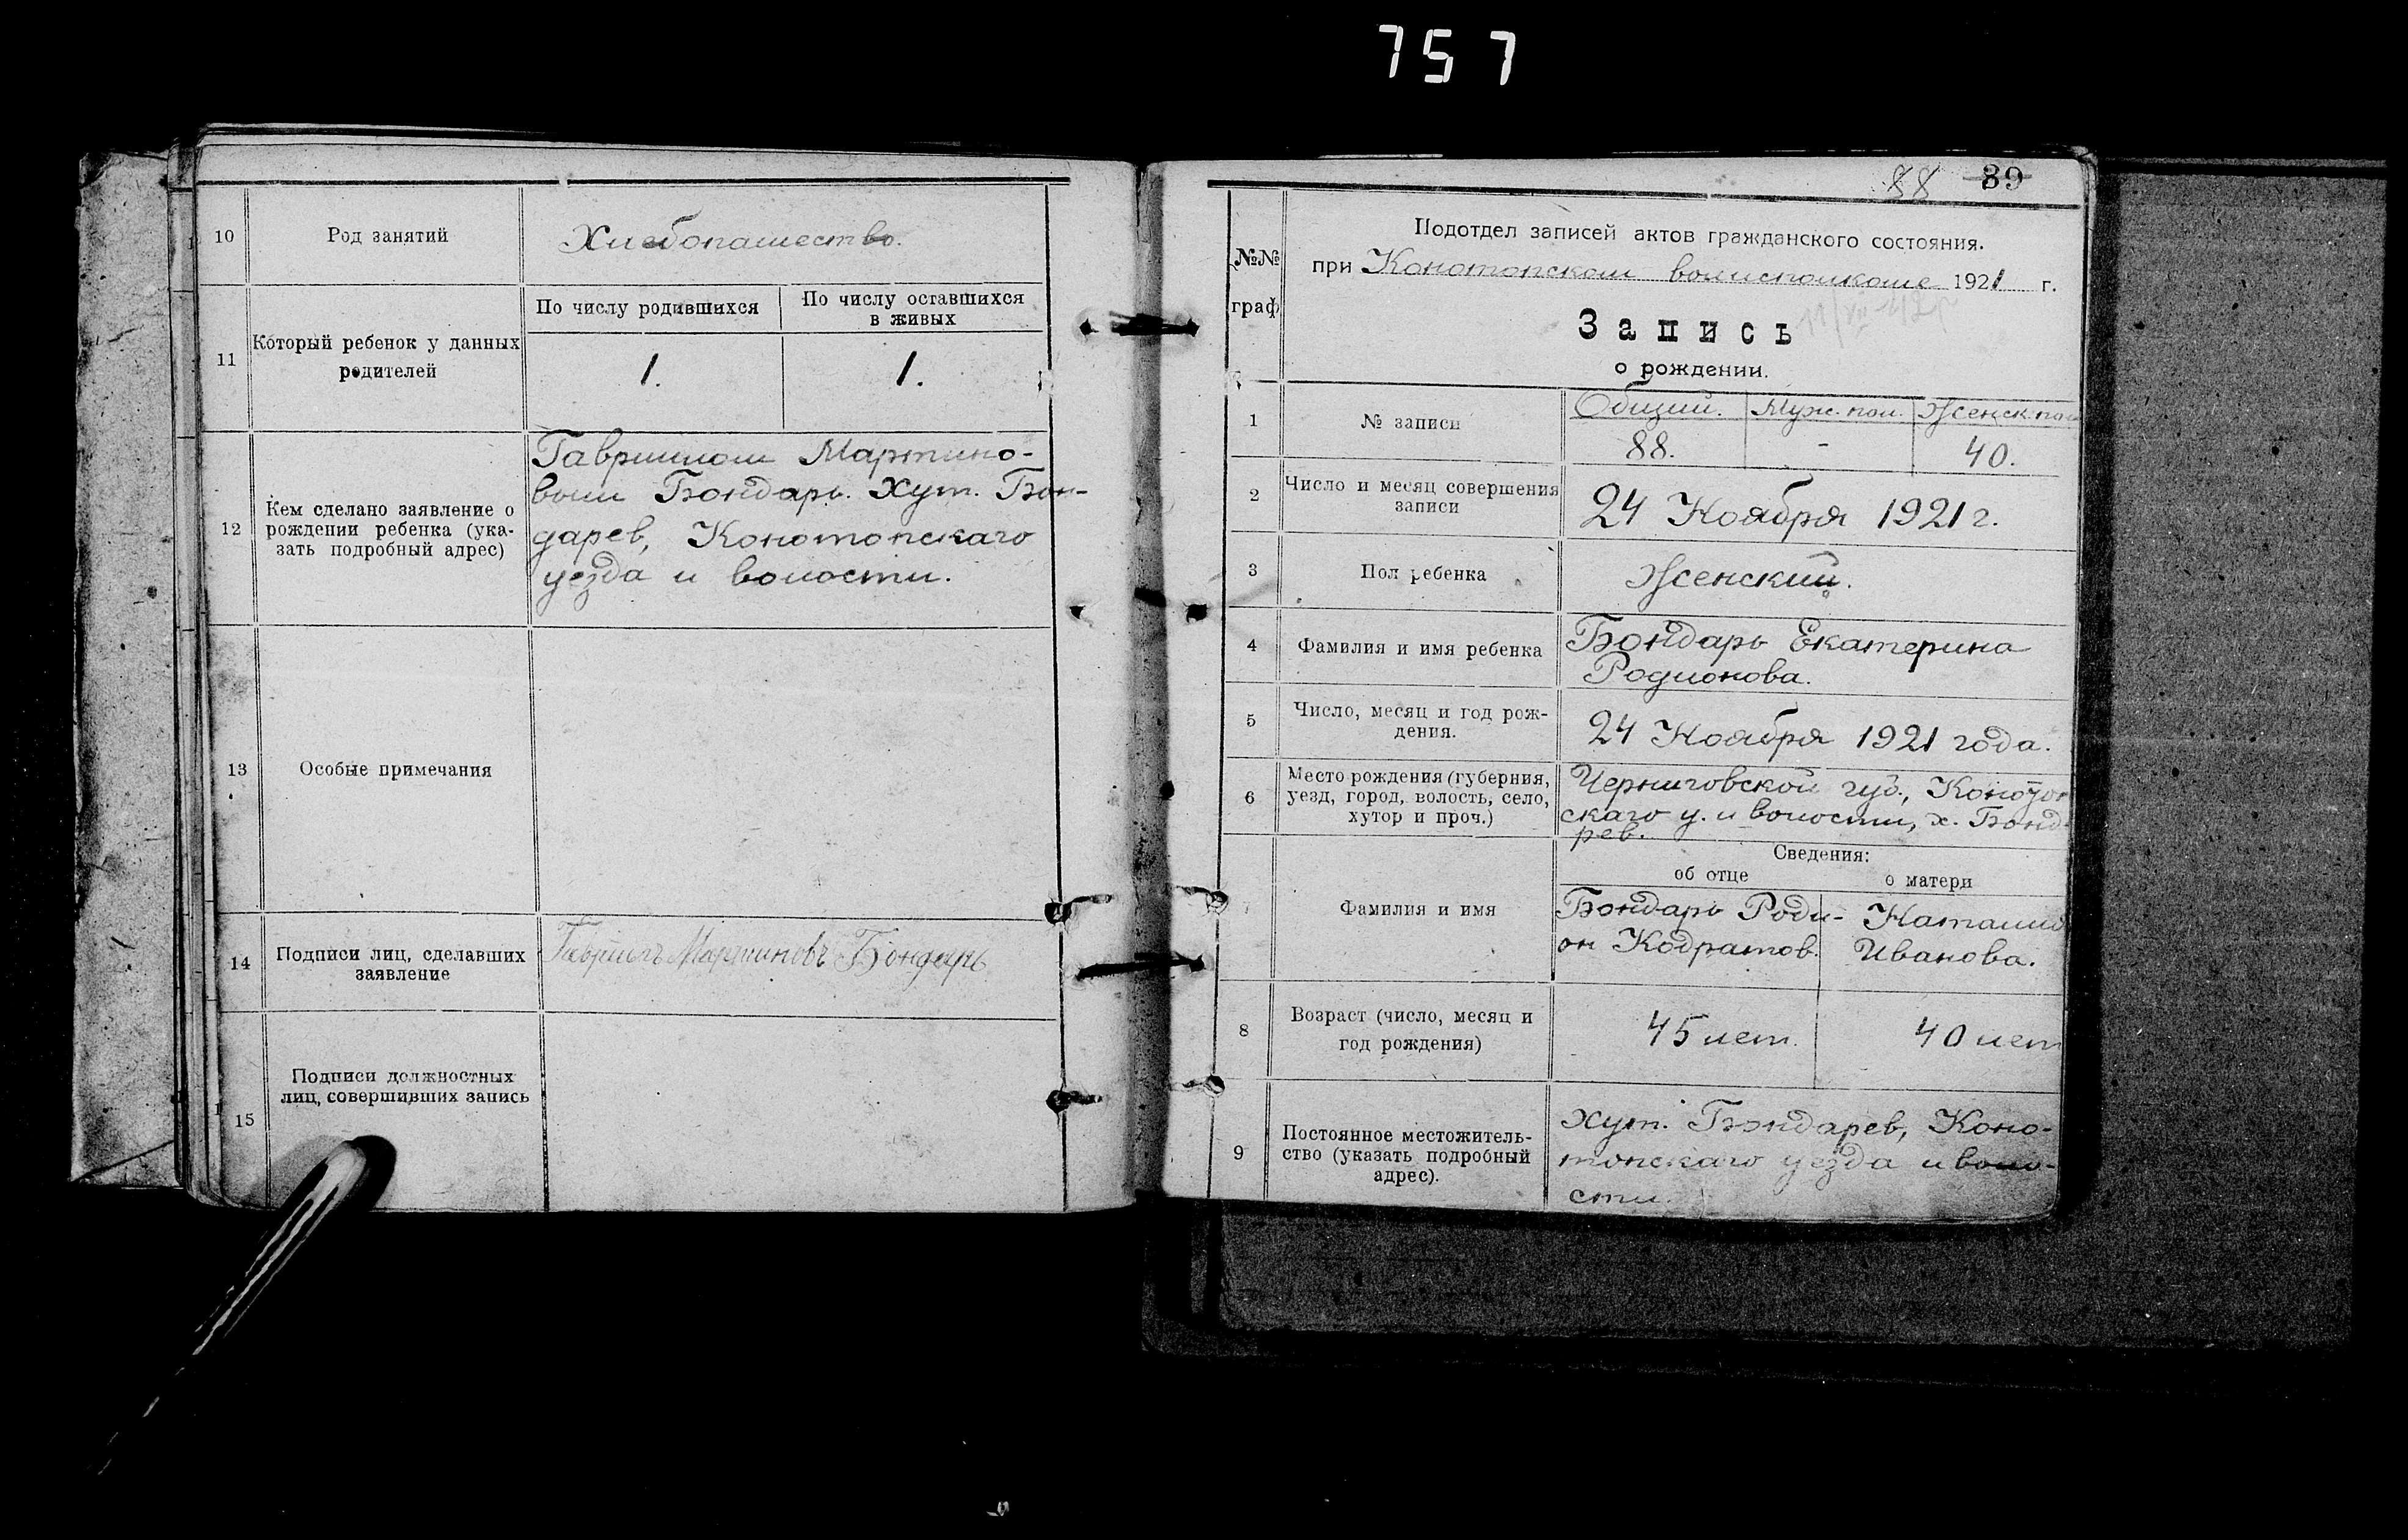 757
10 Род занятий Хлебопашество.
11 Который ребенок у данных родителей
По числу родившихся
По числу оставшихся
в живых
1.
1.
12
Кем сделано заявление о
рождении ребенка (ука-
зать подробный адрес)
Гавриилом Мартино-
вым Бондарь. Хут. Бон-
дарев, Конотопскаго
уезда и волости.
13 Особые примечания
14
Подписи лиц, сделавших
заявление
Гавриилъ Мартиновъ Бондарь
15
Подписи должностных
лиц, совершивших запись
88 39
№№
граф
Подотдел записей актов гражданского состояния.
при Конотопском волисполкоме 1921 г.
Запись
о рождении.
1 № записи
Общий. Муж. пол. Женск. пол
88. - 40.
2
Число и месяц совершения
записи
24 Ноября 1921 г.
3 Пол ребенка Женский.
4 Фамилия и имя ребенка
Бондарь Екатерина
Родионова.
5
Число, месяц и год рож-
дения.
24 Ноября 1921 года.
6
Место рождения (губерния,
уезд, город, волость, село,
хутор и проч.)
Черниговской губ., Конотоп
скаго у. и волости, х. Бонда
рев.
Сведения:
об отце о матери
7 Фамилия и имя
Бондарь Роди-
он Кодратов.
Наталия
Иванова.
8
Возраст (число, месяц и
год рождения)
45 лет.
40 лет
9
Постоянное местожитель-
ство (указать подробный
адрес).
Хут. Бондарев, Коно-
топскаго уезда и воло-
сти.